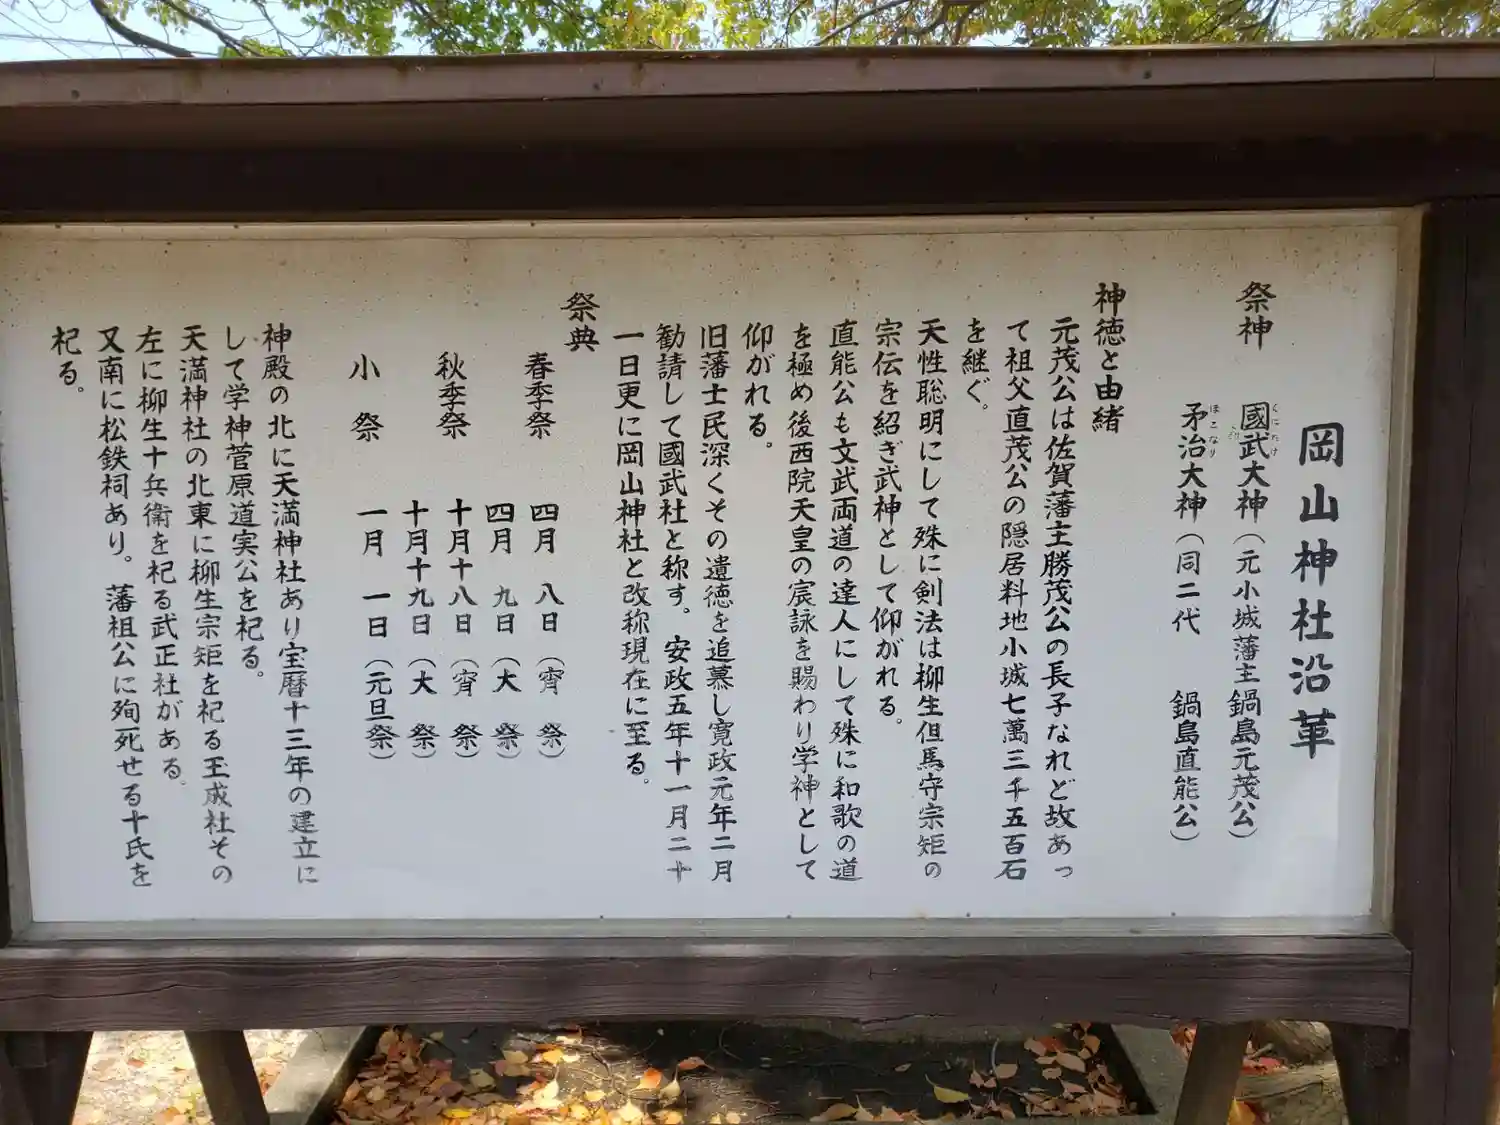 岡山神社沿革
祭神
國武大神(元小城藩主鍋島元茂公)
くにたけ
矛治大神(同二代 鍋島直能公)
ほこなり
神徳と由緒
元茂公は佐賀藩主勝茂公の長子なれど故あっ
て祖父直茂公の隠居料地小城七萬三千五百石
を継ぐ。
天性聡明にして殊に剣法は柳生但馬守宗矩の
宗伝を紹ぎ武神として仰がれる。
直能公も文武両道の達人にして殊に和歌の道
を極め後西院天皇の宸詠を賜わり学神として
仰がれる。
旧藩士民深くその遺徳を追慕し寛政元年二月
勧請して國武社と称す。安政五年十一月二十
一日更に岡山神社と改称現在に至る。
祭典
春季祭 四月 八日(宵 祭)
四月 九日(大 祭)
秋季祭 十月十八日(宵 祭)
十月十九日(大 祭)
小 祭 一月 一日(元旦祭)
神殿の北に天満神社あり宝暦十三年の建立に
して学神菅原道実公を祀る。
天満神社の北東に柳生宗矩を祀る玉成社その
左に柳生十兵衛を祀る武正社がある。
又南に松鉄祠あり。藩祖公に殉死せる十氏を
祀る。